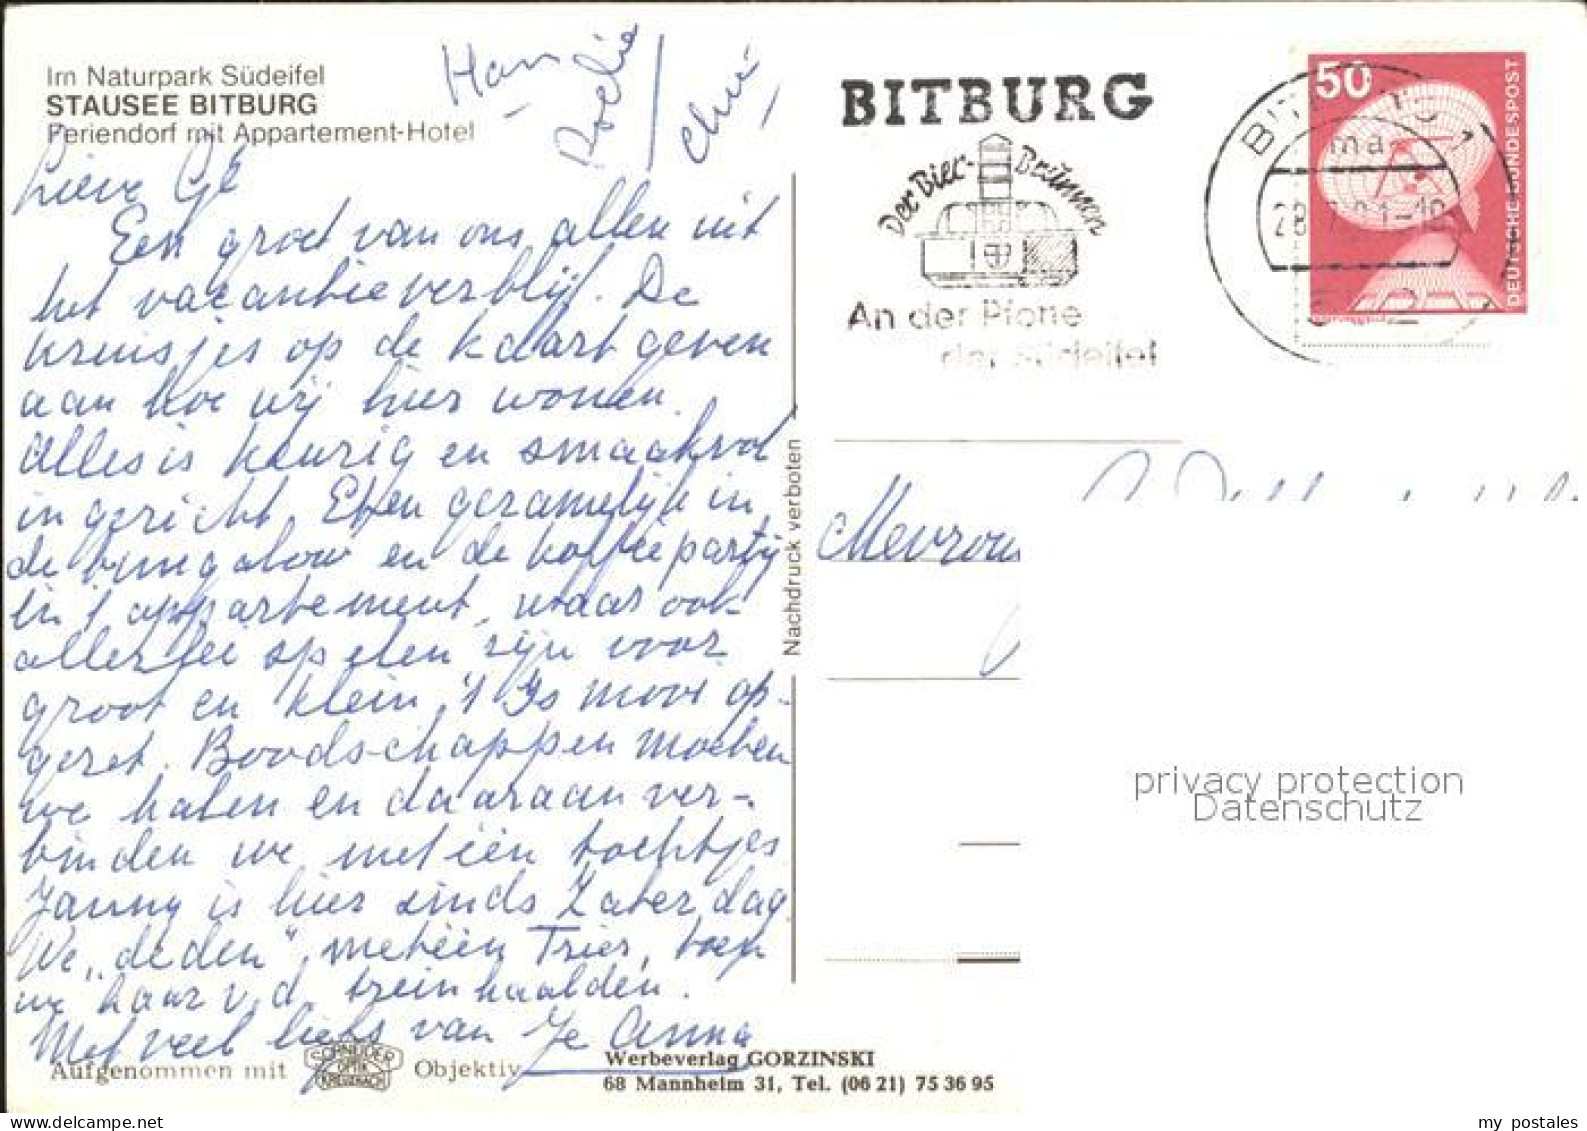 Im Naturpark Südeifel
STAUSEE BITBURG
Feriendorf mit Appartement-Hotel
Han
Roelie
Lieve Gé
Een groet van ons allen uit
het vacantieverblijf. De
kruisjes op de kaart geven
aan hoe wij hier wonen.
Alles is keurig en smaakvol
ingericht. Eten gezamelijk in
de bungalow en de koffiepartij
in 't appartement, waar ook
allerlei spelen zijn voor
groot en klein. 't Is mooi op-
gezet. Boodschappen moeten
we halen en daaraan ver-
binden we meteen tochtjes
Janny is hier sinds Zaterdag
We „deden" meteen Trier, toen
we haar v.d. trein haalden.
Met veel liefs van Je Anna
Aufgenommen mit SCHNEIDER OPTIK KREUZNACH Objektiv
Werbeverlag GORZINSKI
68 Mannheim 31, Tel. (06 21) 75 36 95
Nachdruck verboten
BITBURG
Der Bier-Brunnen
An der Pforte
der Südeifel
BITBURG 1
ma
50
DEUTSCHE BUNDESPOST
Mevrou
privacy protection
Datenschutz
my postales